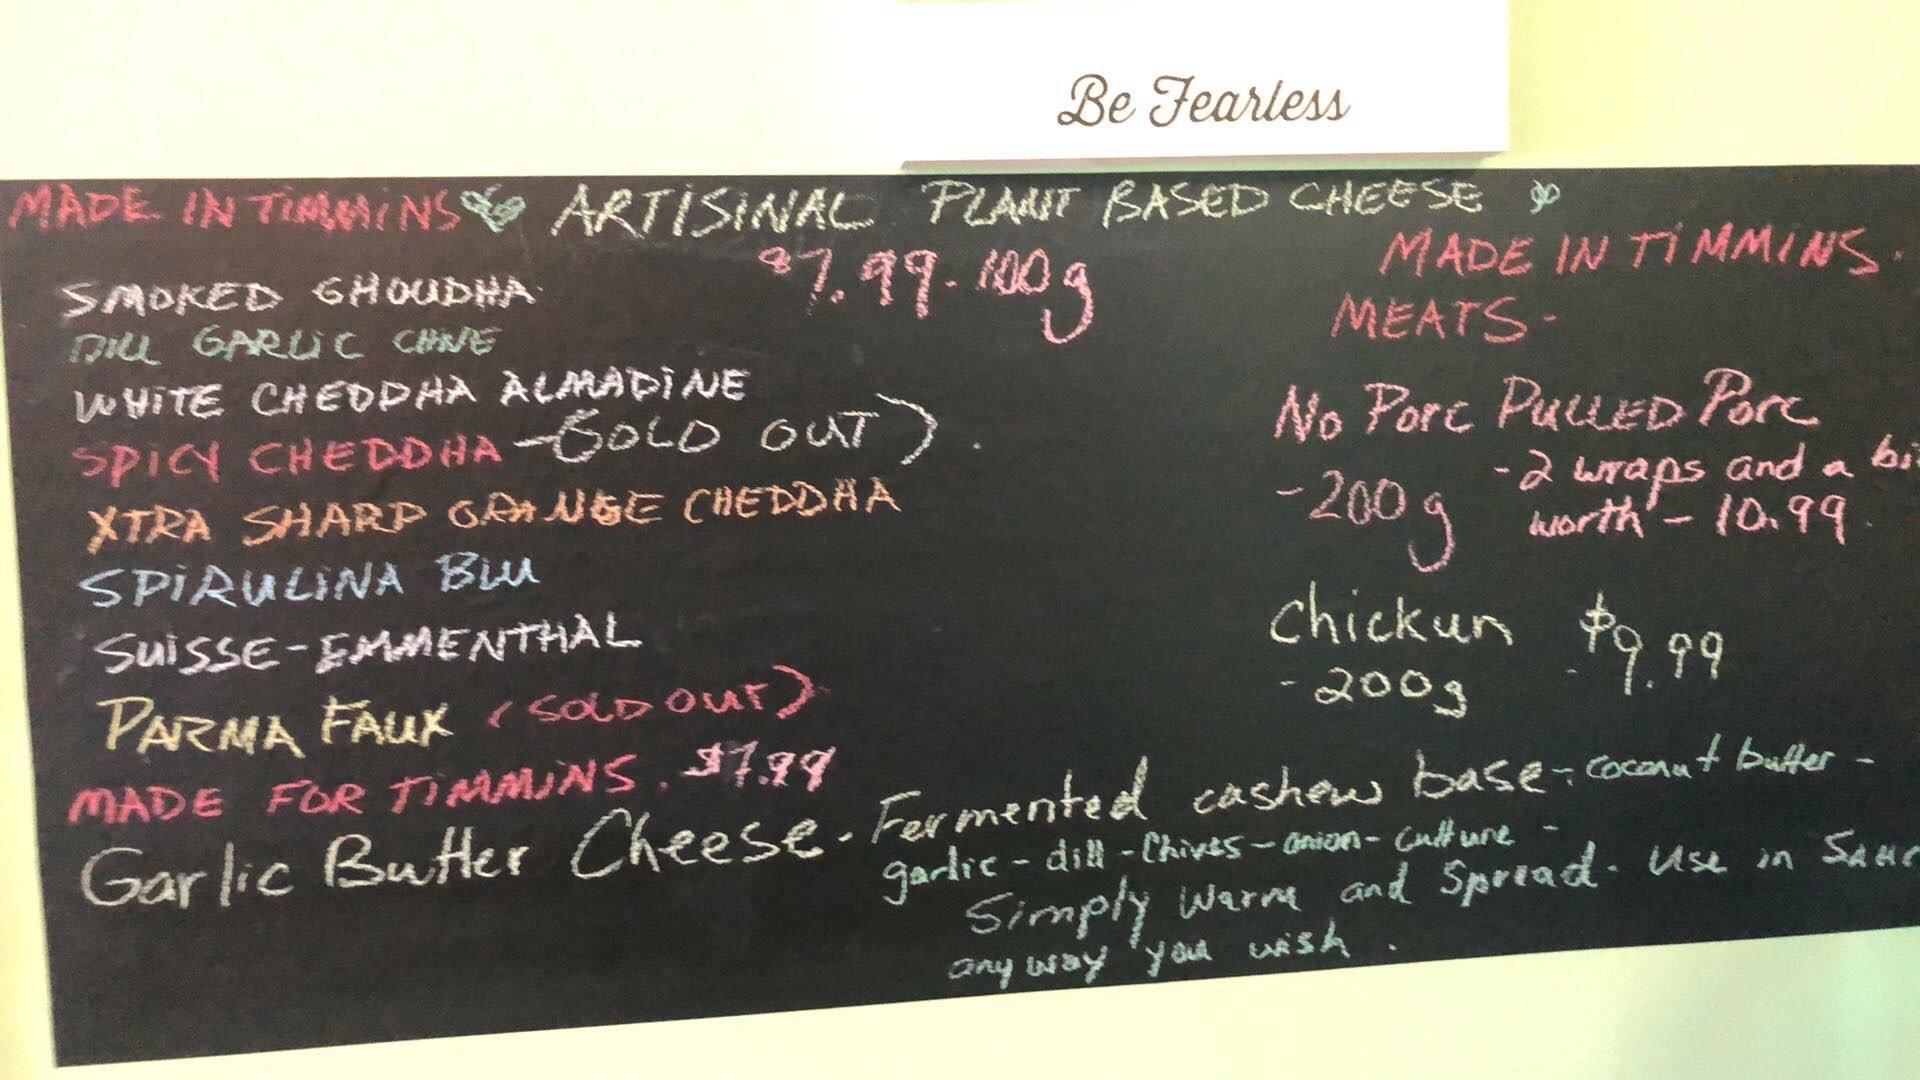 Be Fearless
MADE IN TIMMINS ARTISINAL PLANT BASED CHEESE
$7.99.100g
SMOKED GHOUDHA
DILL GARLIC CHIVE
WHITE CHEDDHA ALMADINE
SPICY CHEDDHA - SOLD OUT)
XTRA SHARP ORANGE CHEDDHA
SPIRULINA BLU
SUISSE-EMMENTHAL
PARMA FAUX (SOLD OUT)
MADE FOR TIMMINS. $7.99
Garlic Butter Cheese - Fermented cashew base - coconut butter -
garlic - dill - Chives - onion - culture -
Simply Warm and Spread. Use in
anyway you wish.
MADE IN TIMMINS.
MEATS -
No Porc PULLED Porc
-200g - 2 wraps and a
worth - 10.99.
Chickun $9.99
- 200g